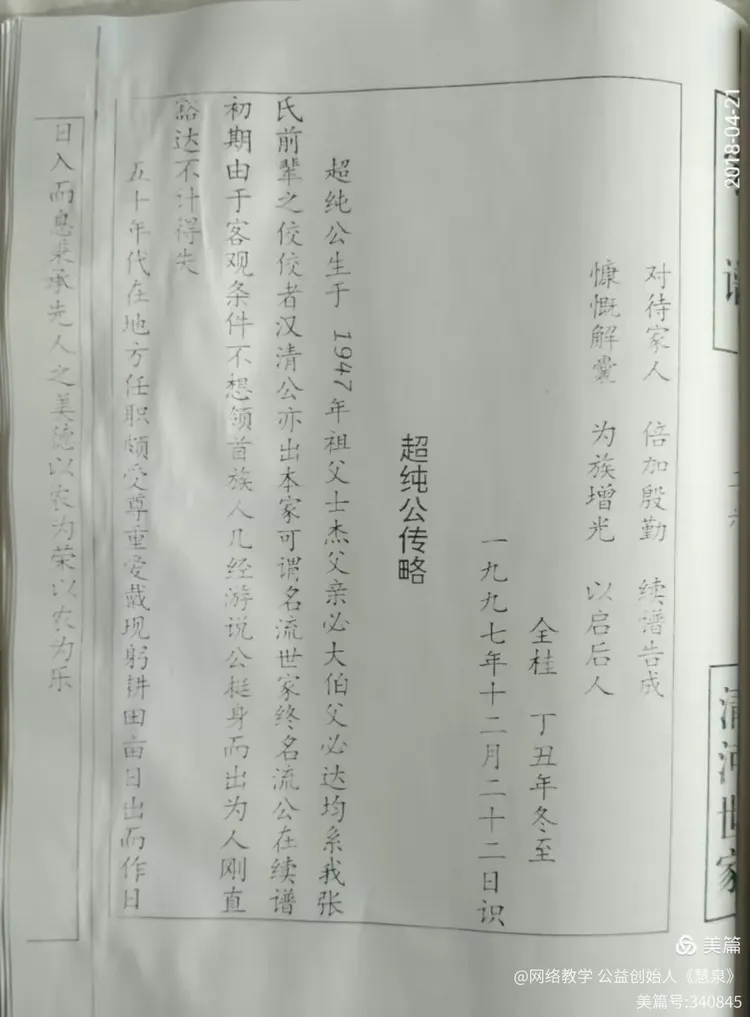 2018-04-21
谱
清河世家
对待家人 倍加殷勤 续谱告成
慷慨解囊 为族增光 以启后人
全桂 丁丑年冬至
一九九七年十二月二十二日识
超纯公传略
超纯公生于 1947年祖父士杰父亲必大伯父必达均系我张
氏前辈之佼佼者汉清公亦出本家可谓名流世家终名流公在续谱
初期由于客观条件不想领首族人几经游说公挺身而出为人刚直
豁达不计得失
五十年代在地方任职颇受尊重爱戴现躬耕田亩日出而作日
日入而息秉承先人之美德以农为荣以农为乐
美篇
@网络教学 公益创始人《慧泉》
美篇号:340845